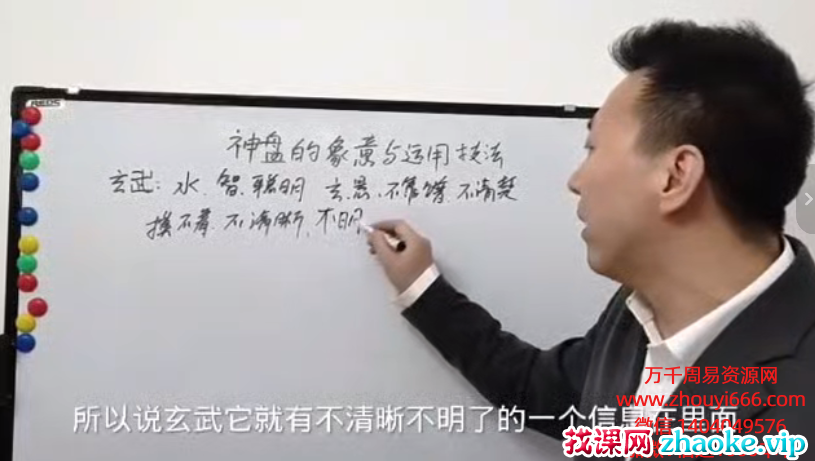 神盘的象意与运用技法
玄武：水、智、聪明 玄、悬、不靠谱 不清楚
摸不着、不清晰、不明
所以说玄武它就有不清晰不明了的一个信息在里面
万千周易资源网
www.zhouyi666.com
找课网zhaoke.vip